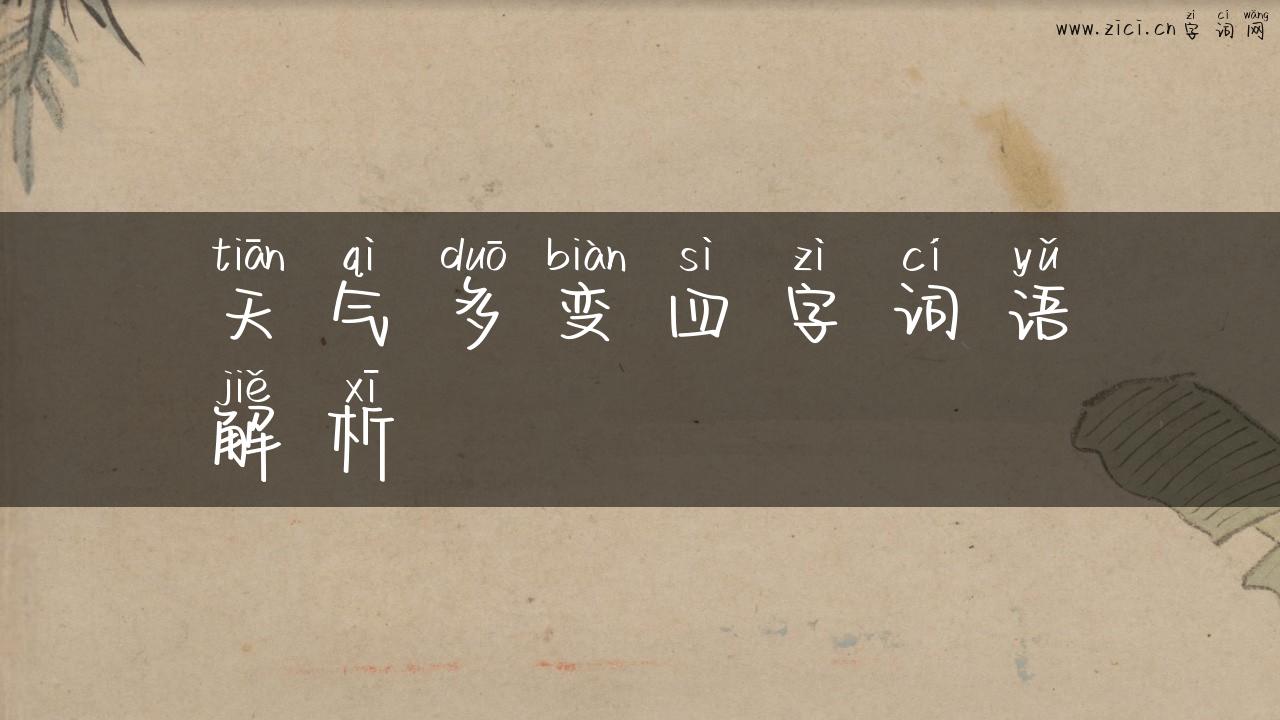 zì cí wǎng
www.zici.cn 字词网
tiān qì duō biàn sì zì cí yǔ
天气多变四字词语
jiě xī
解析